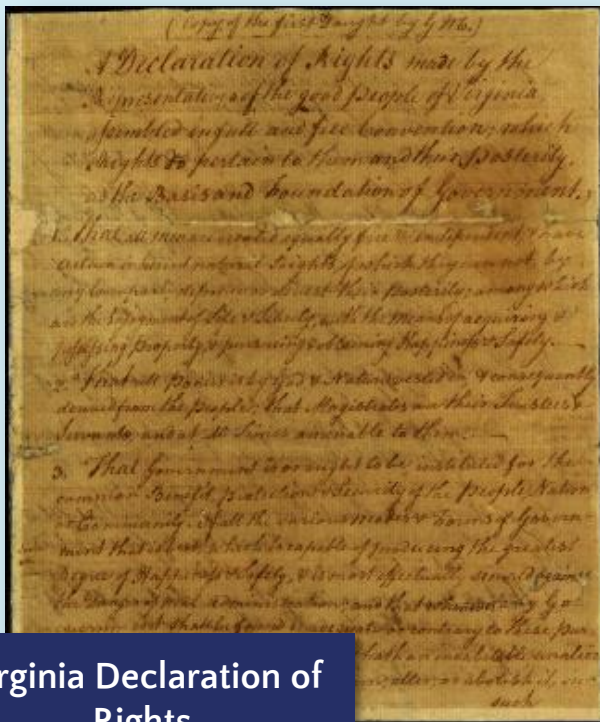 (Copy of the first Daught by G M.)
A Declaration of Rights made by the
Representatives of the good People of Virginia,
assembled in full and free Convention; which
Rights do pertain to them and their Posterity,
as the Basis and Foundation of Government.
1. That all men are created equally free & independent, & have
certain inherent natural Rights, of which they cannot, by
any Compact, deprive or divest their Posterity; among which
are the Enjoyment of Life & Liberty, with the Means of acquiring &
possessing Property, & pursueing & obtaining Happiness & Safety.
2. That all Power is by God & Nature vested in, & consequently
derived from the People; that Magistrates are their Trustees &
Servants, and at all Times amenable to them.
3. That Government is or ought to be instituted for the
common Benefit, protection & Security of the People, Nation
or Community. Of all the various modes & Forms of Govern-
ment that is best, which is capable of producing the greatest
Degree of Happiness & Safety, & is most effectually secured against
the Danger of mal-administration; and that whenever any Go-
vernment shall be found inadequate or contrary to these pur-
hath an
alter or abolish it, in
such
rginia Declaration of
Rights